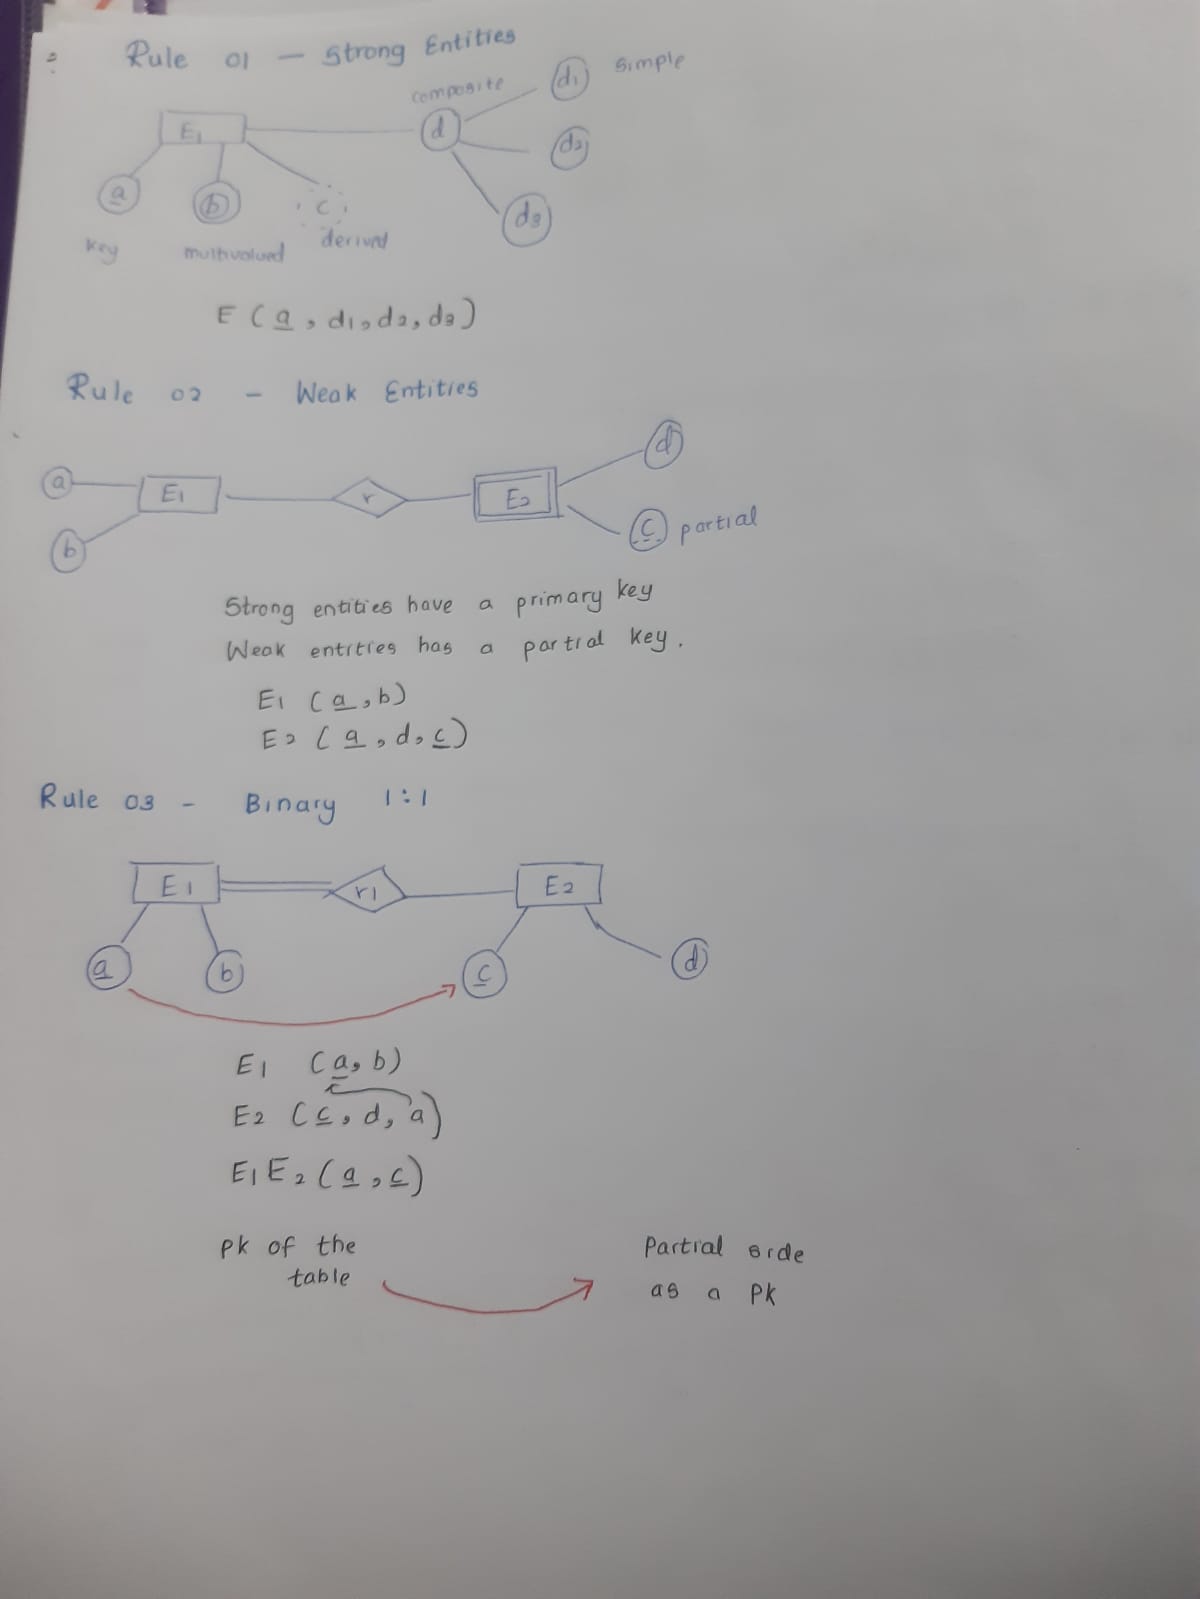 Rule 01 - Strong Entities
composite
d1 simple
E1
d
d2
a
b
c
d3
key
multivalued
derived
E (a, d1, d2, d3)
Rule 02 - Weak Entities
d
a
E1
r
E2
b
c partial
Strong entities have a primary key
Weak entities has a partial key.
E1 (a, b)
E2 (a, d, c)
Rule 03 - Binary 1:1
E1
r1
E2
a
b
c
d
E1 (a, b)
E2 (c, d, a)
E1E2 (a, c)
Pk of the
table
Partial side
as a PK